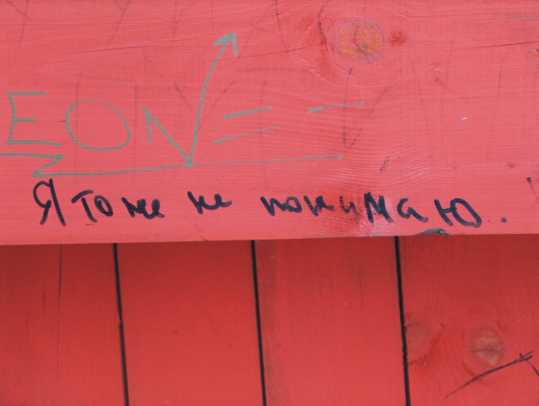 EON
Я тоже не понимаю.